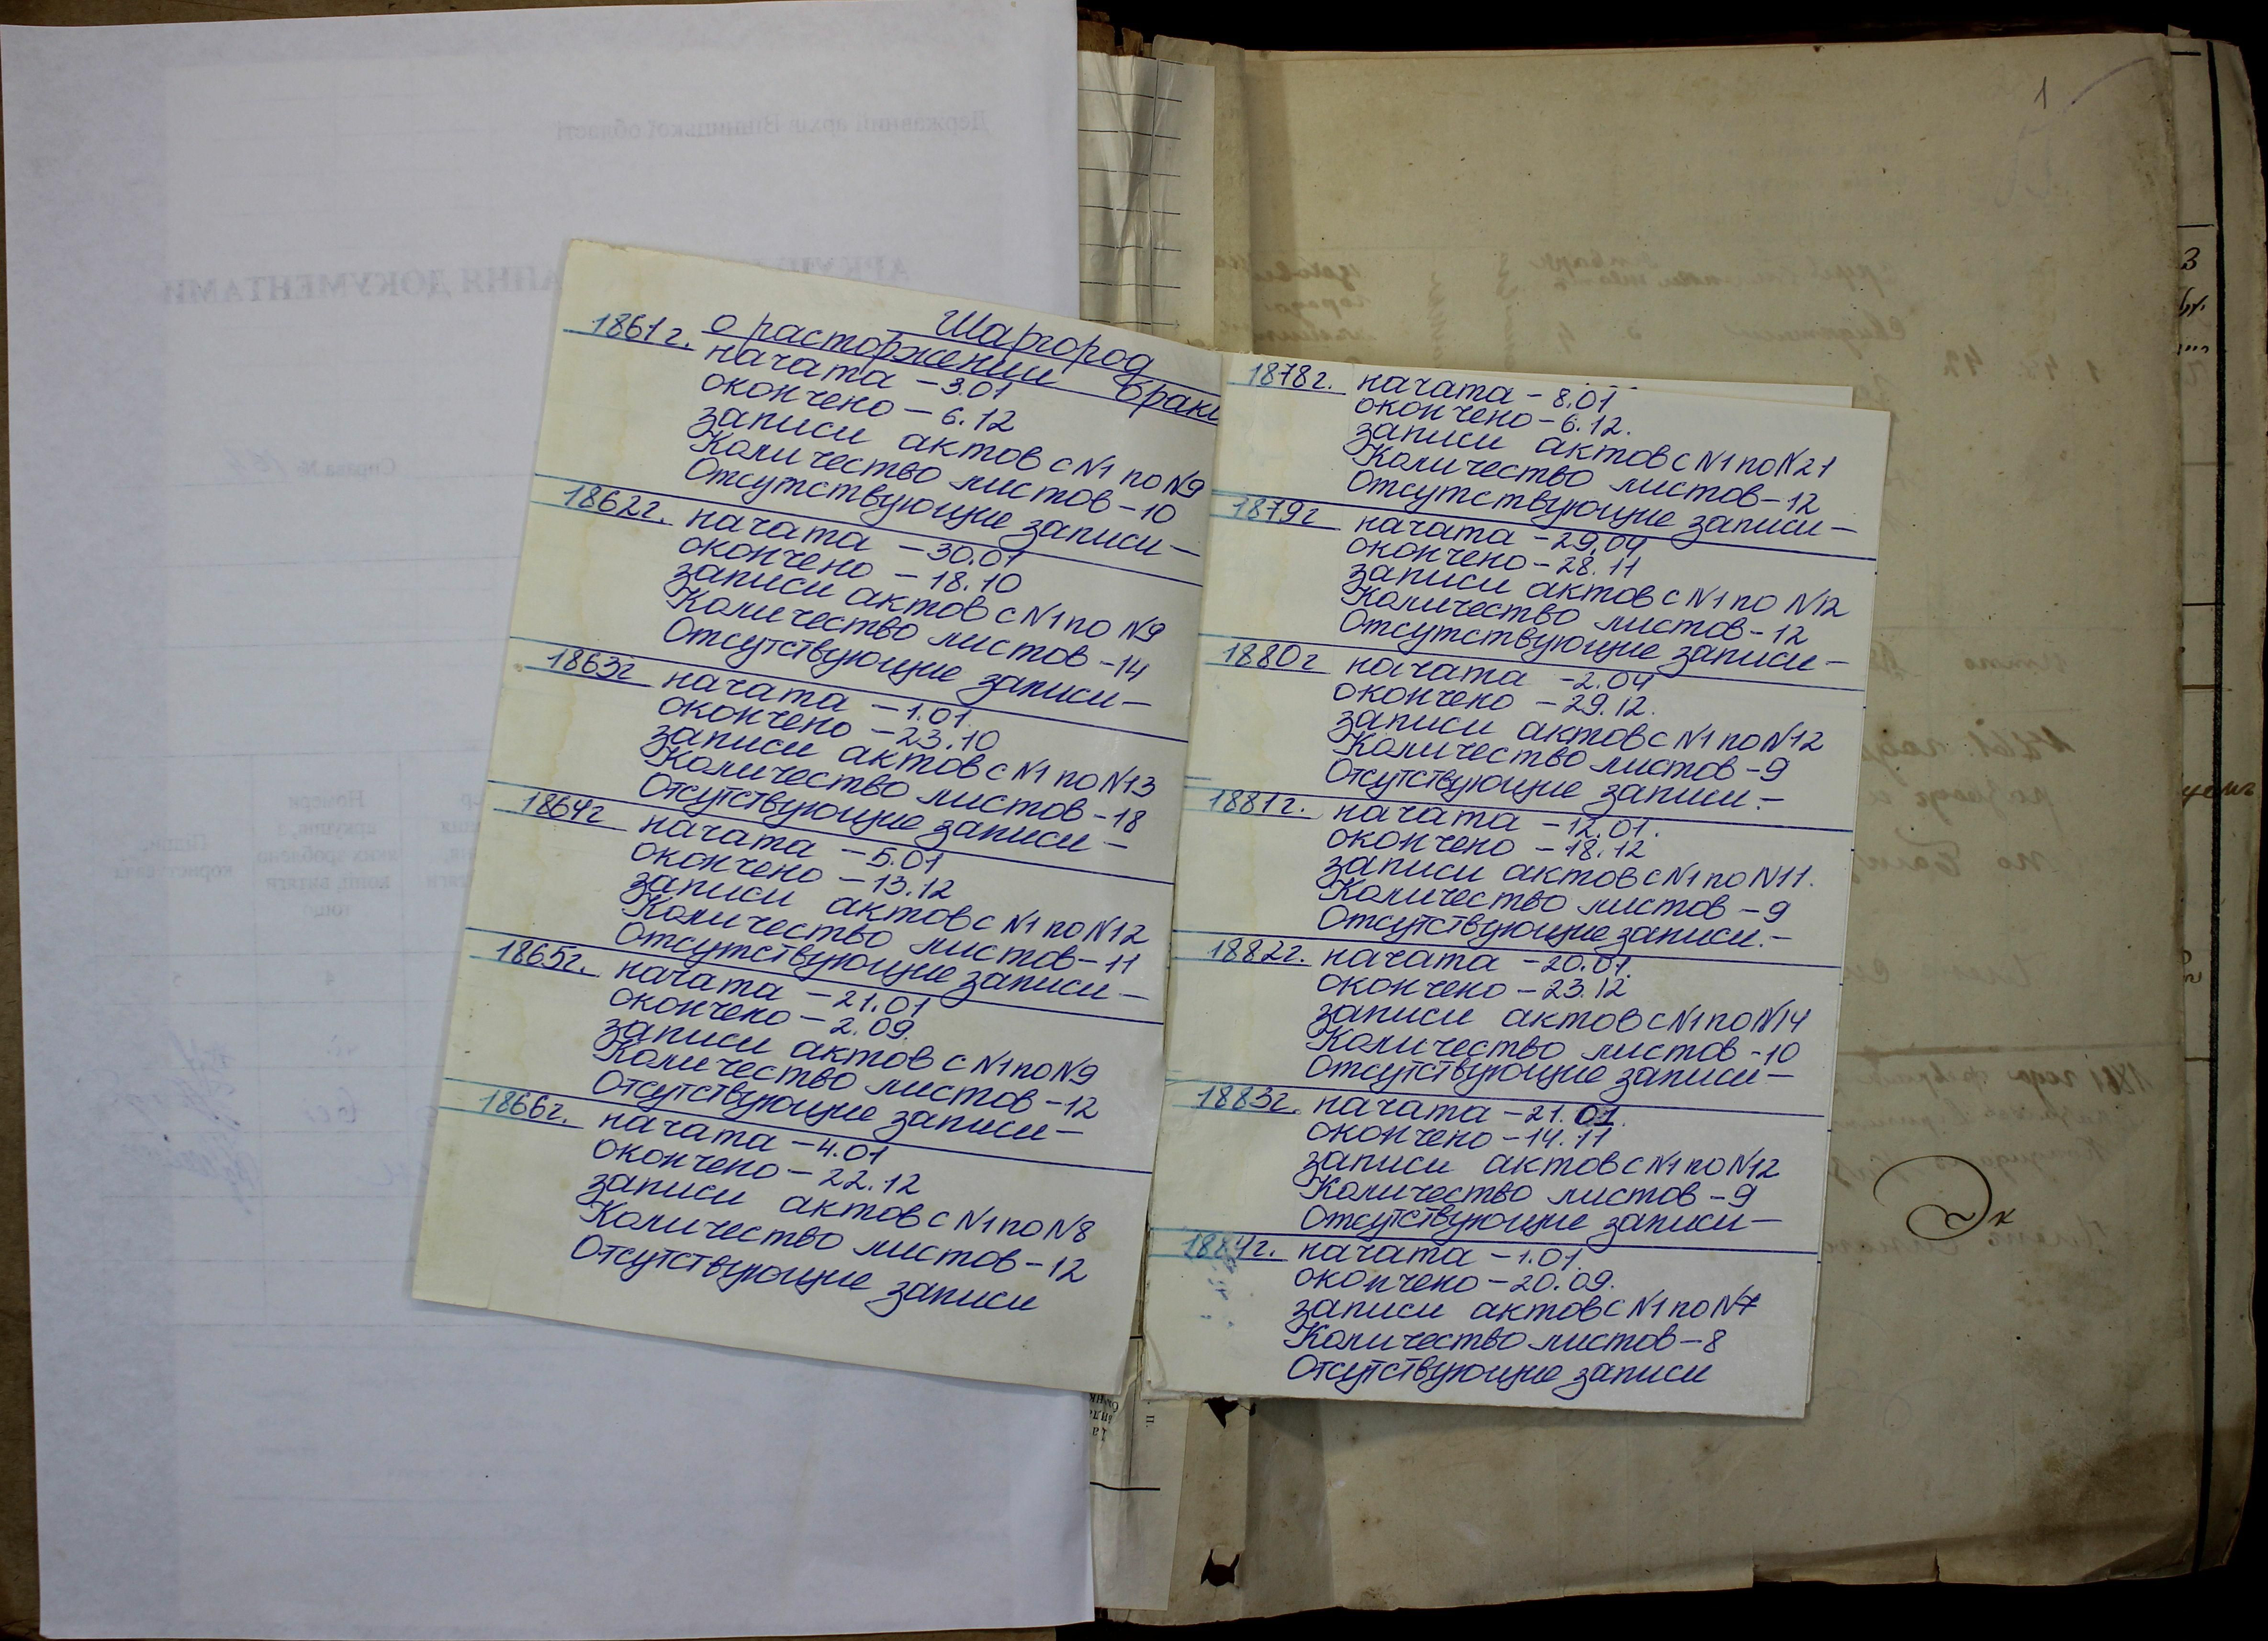 Шаргород
о расторжении брака
1861г. начата - 3.01
окончено - 6.12
записи актов с N1 по N9
Количество листов - 10
Отсутствующие записи -
1862г. начата - 30.01
окончено - 18.10
записи актов с N1 по N9
Количество листов - 14
Отсутствующие записи -
1863г начата - 1.01.
окончено - 23.10
записи актов с N1 по N13
Количество листов - 18
Отсутствующие записи -
1864г начата - 5.01
окончено - 13.12
записи актов с N1 по N12
Количество листов - 11
Отсутствующие записи -
1865г. начата - 21.01
окончено - 2.09.
записи актов с N1 по N9
Количество листов - 12
Отсутствующие записи -
1866г. начата - 4.01
окончено - 22.12
записи актов с N1 по N8
Количество листов - 12
Отсутствующие записи
1878г. начата - 8.01
окончено - 6.12.
записи актов с N1 по N21
Количество листов - 12
Отсутствующие записи -
1879г начата - 29.04
окончено - 28.11
записи актов с N1 по N12
Количество листов - 12
Отсутствующие записи -
1880г начата - 2.04
окончено - 29.12.
записи актов с N1 по N12
Количество листов - 9
Отсутствующие записи. -
1881г. начата - 12.01.
окончено - 18.12
записи актов с N1 по N11.
Количество листов - 9
Отсутствующие записи. -
1882г. начата - 20.01.
окончено - 23.12
записи актов с N1 по N14
Количество листов - 10
Отсутствующие записи -
1883г. начата - 21.01.
окончено - 14.11
записи актов с N1 по N12
Количество листов - 9
Отсутствующие записи -
1884г. начата - 1.01.
окончено - 20.09.
записи актов с N1 по N7
Количество листов - 8
Отсутствующие записи
1
Державний архів Вінницької області